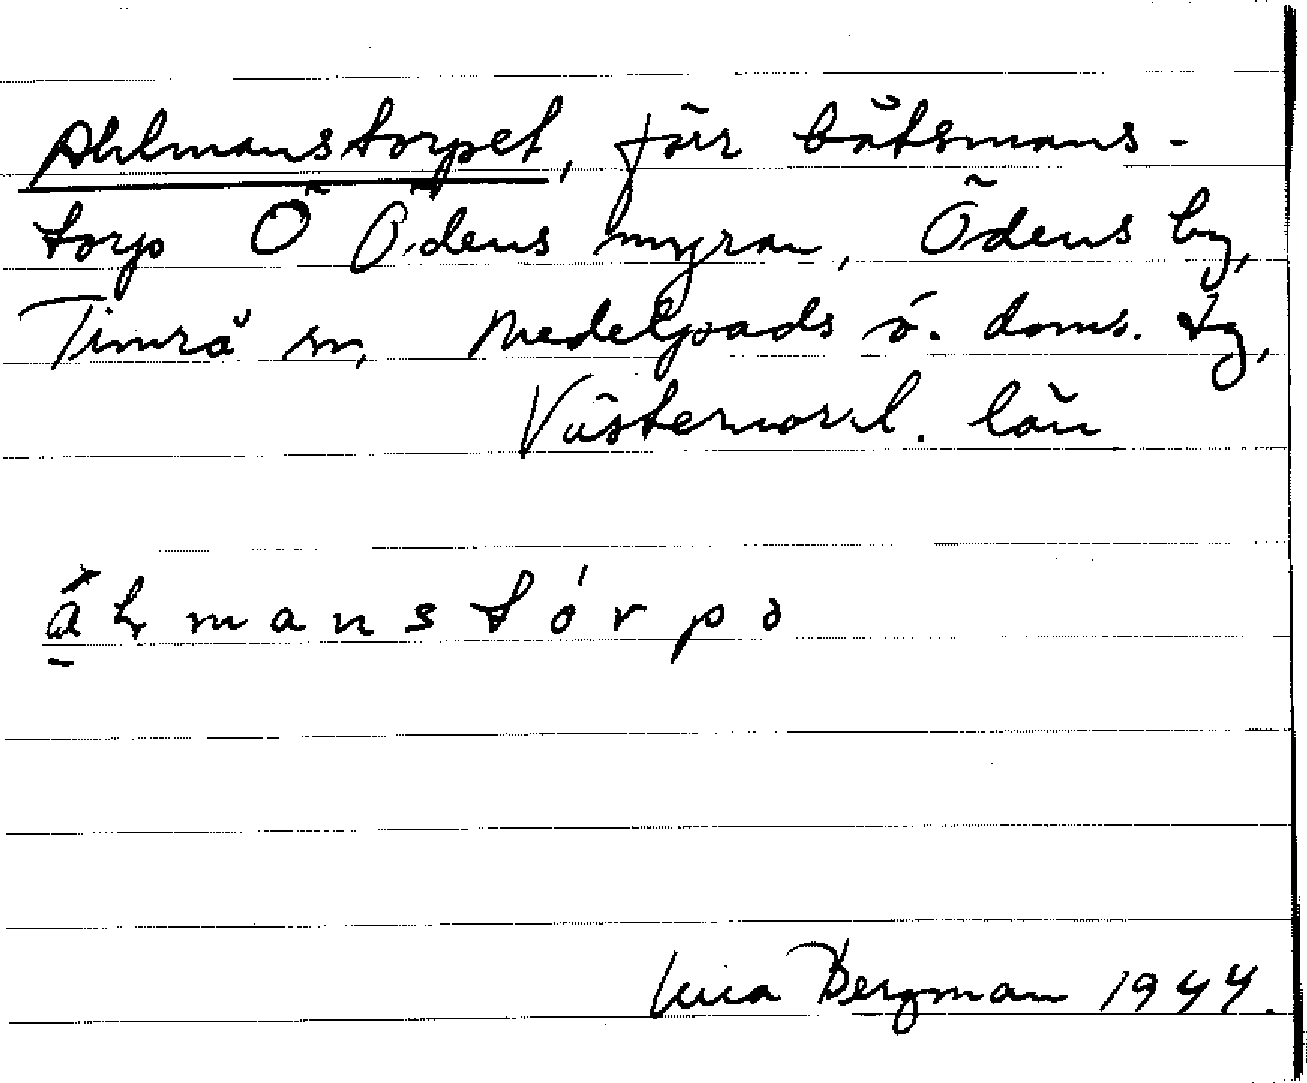 Ahlmanstorpet, förr båtsmans-
torp Ö Ödens myran, Ödens by,
Timrå sn, Medelpads ö. doms. tg,
Västernorrl. län
manstórpə
Bergman 1944.